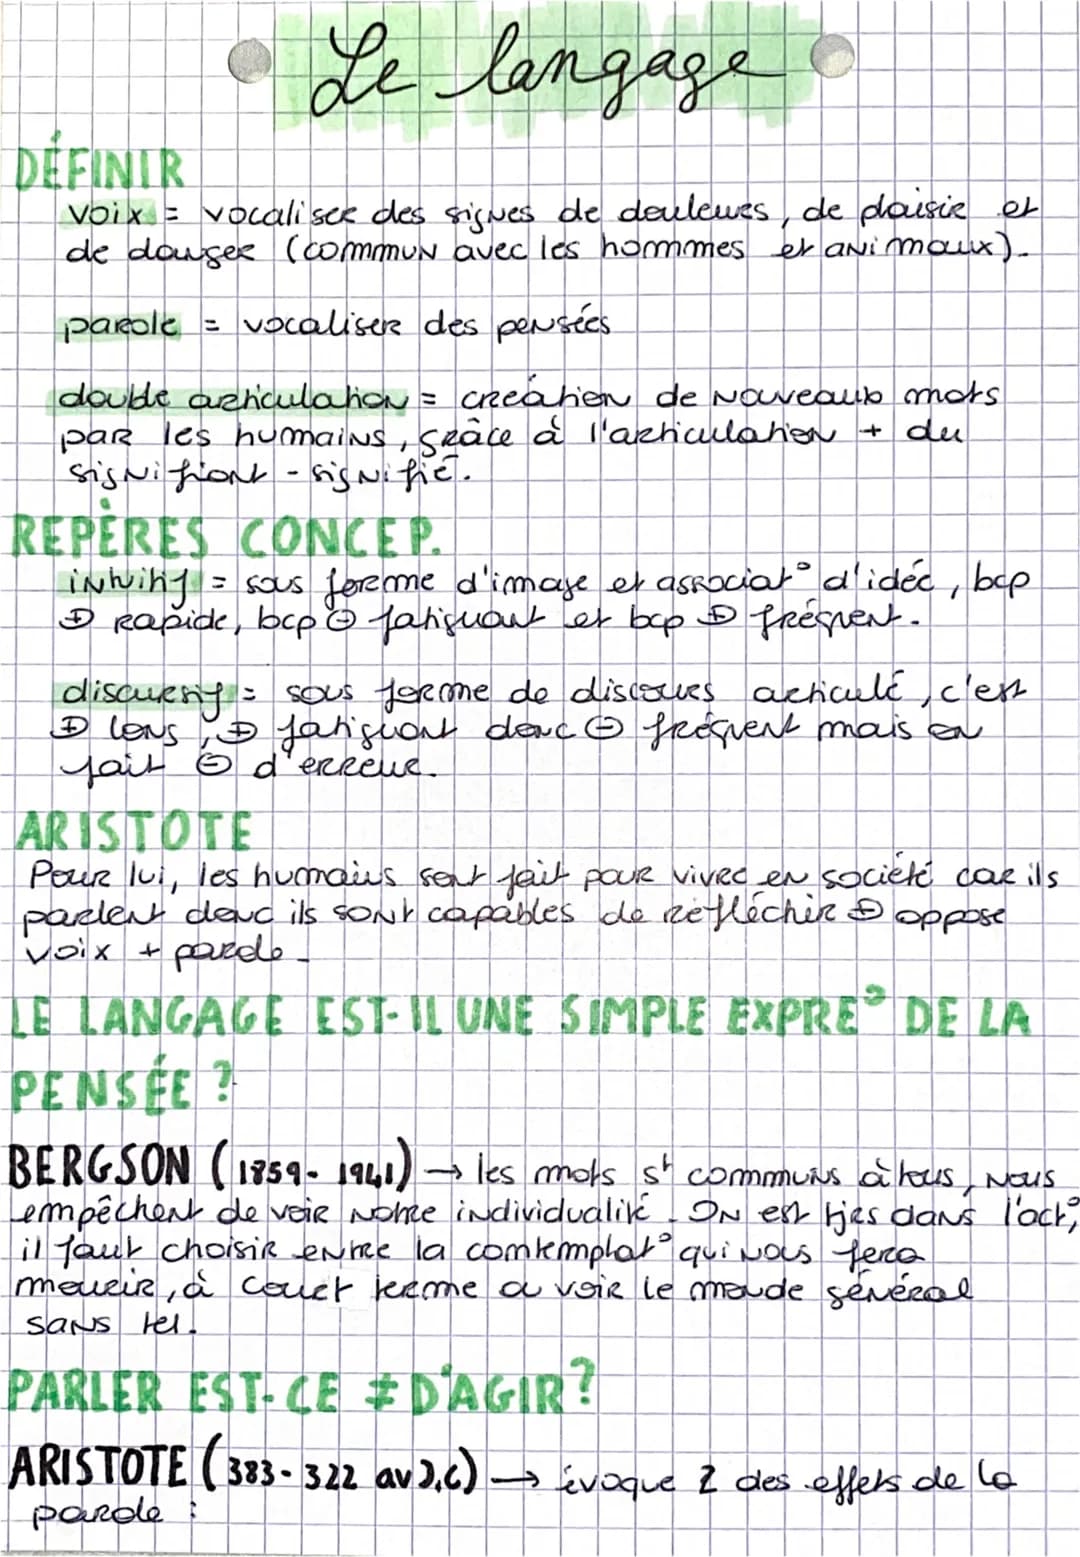 Le langage
DÉFINIR
voix = vocaliser des signes de douleurs, de plaisir et
de danger (commun avec les hommes et animaux).
parole = vocaliser des pensées
double articulation = création de nouveaux mots
par les humains, grâce à l'articulation + du
signifiant - signifié.
REPÈRES CONCEP.
intuitif = sous forme d'image et associat° d'idée, bcp
⊕ rapide, bcp ⊖ fatiguant et bcp ⊕ fréquent.
discursif = sous forme de discours articulé, c'est
⊕ long, ⊕ fatiguant donc ⊖ fréquent mais on
fait ⊖ d'erreur.
ARISTOTE
Pour lui, les humains sont fait pour vivre en société car ils
parlent donc ils sont capables de réfléchir ⊕ oppose
voix + parole.
LE LANGAGE EST-IL UNE SIMPLE EXPRE° DE LA
PENSÉE ?
BERGSON (1859-1941) → les mots st communs à tous, nous
empêchent de voir notre individualité. On est tjrs dans l'act°,
il faut choisir entre la comtemplat° qui nous fera
mourir, à court terme a voir le monde général
sans tel.
PARLER EST-CE ≠ D'AGIR ?
ARISTOTE (383-322 av J.C) → évoque 2 des effets de la
parole :